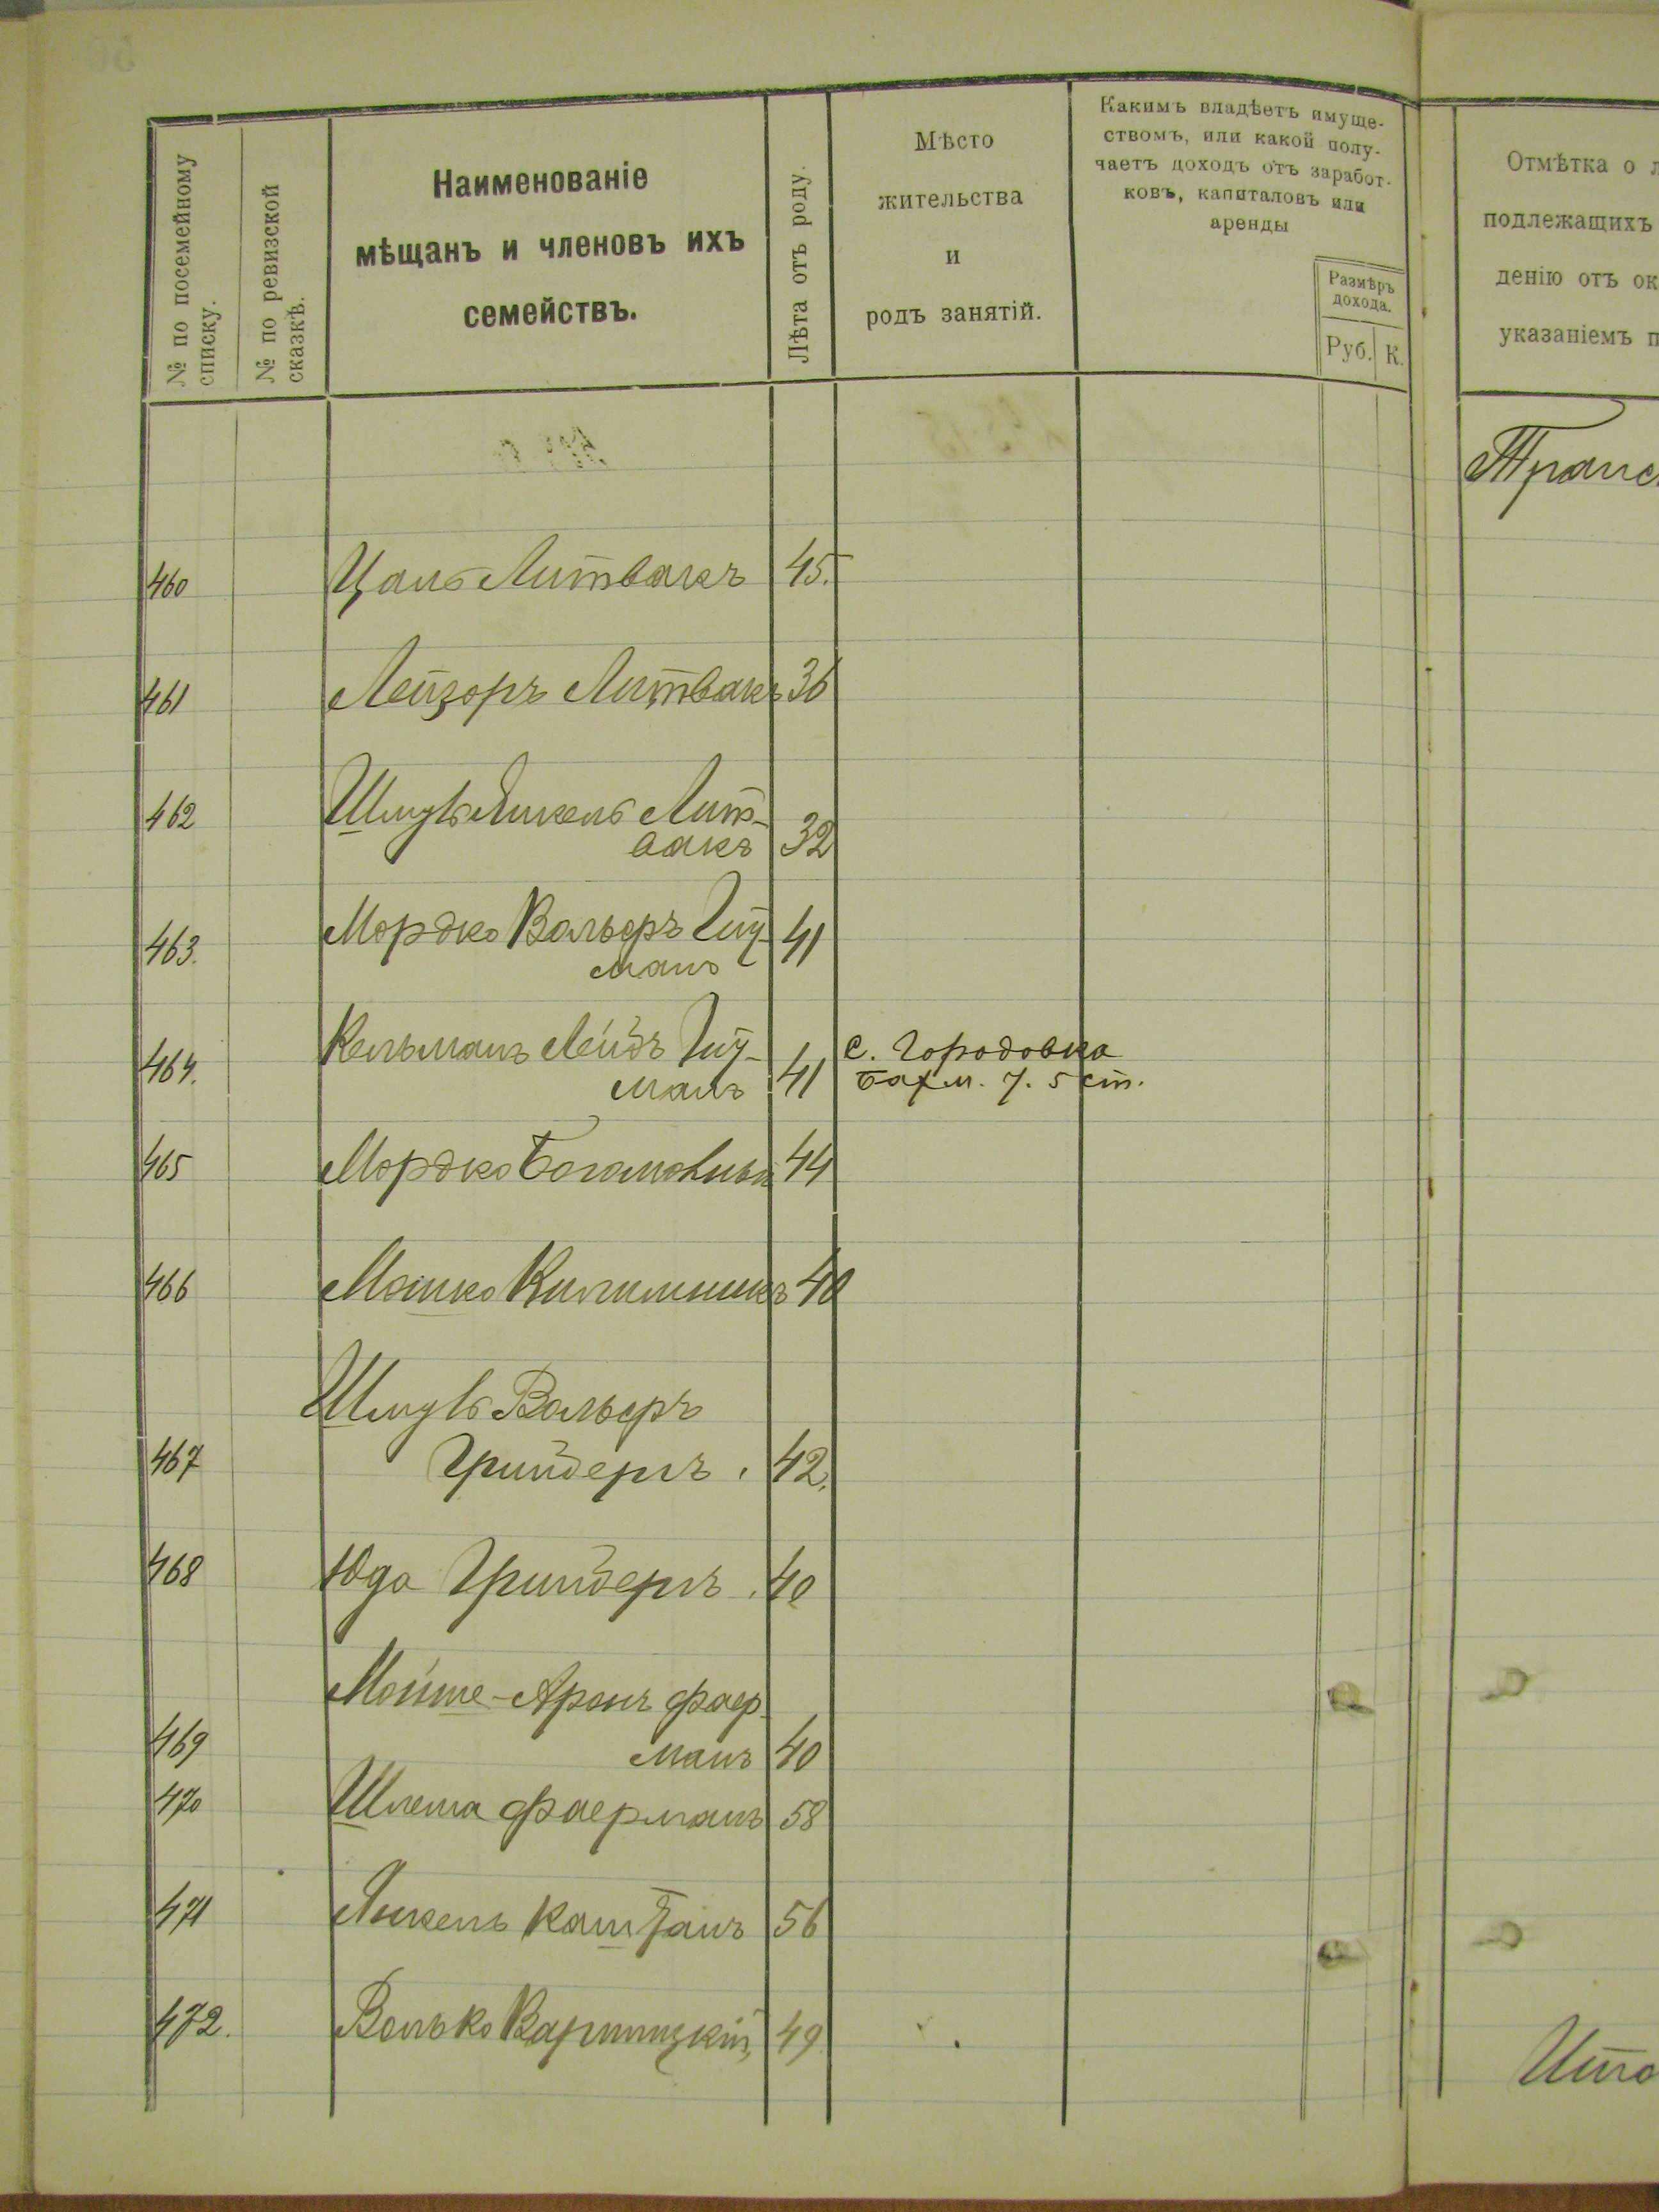 № по посемейному
списку.
№ по ревизской
сказкѣ.
Наименованіе
мѣщанъ и членовъ ихъ
семействъ.
Лѣта отъ роду.
Мѣсто
жительства
и
родъ занятій.
Какимъ владѣетъ имуще-
ствомъ, или какой полу-
чаетъ доходъ отъ заработ-
ковъ, капиталовъ или
аренды
Размѣръ
дохода.
Руб. К.
Отмѣтка о
подлежащихъ
денію отъ ок
указаніемъ п
460 Цаль Литвакъ 45.
461 Лейзоръ Литвакъ 36
462 Шмуль Янкель Лит-
вакъ 32
463. Мордко Вольѳръ
манъ 41
464. Кельманъ Лейбъ
манъ 41
с. Городовка
Бахм. у. 5 ст.
465 Мордко 44
466 Мошко Килимникъ 40
Шмуль Вольѳръ
467 42.
468 Юда 40
Мойше-Аронъ Фаер-
469 манъ 40
470 Шлема Фаерманъ 58
471 Янкель Каштанъ 56
472. Волько 49